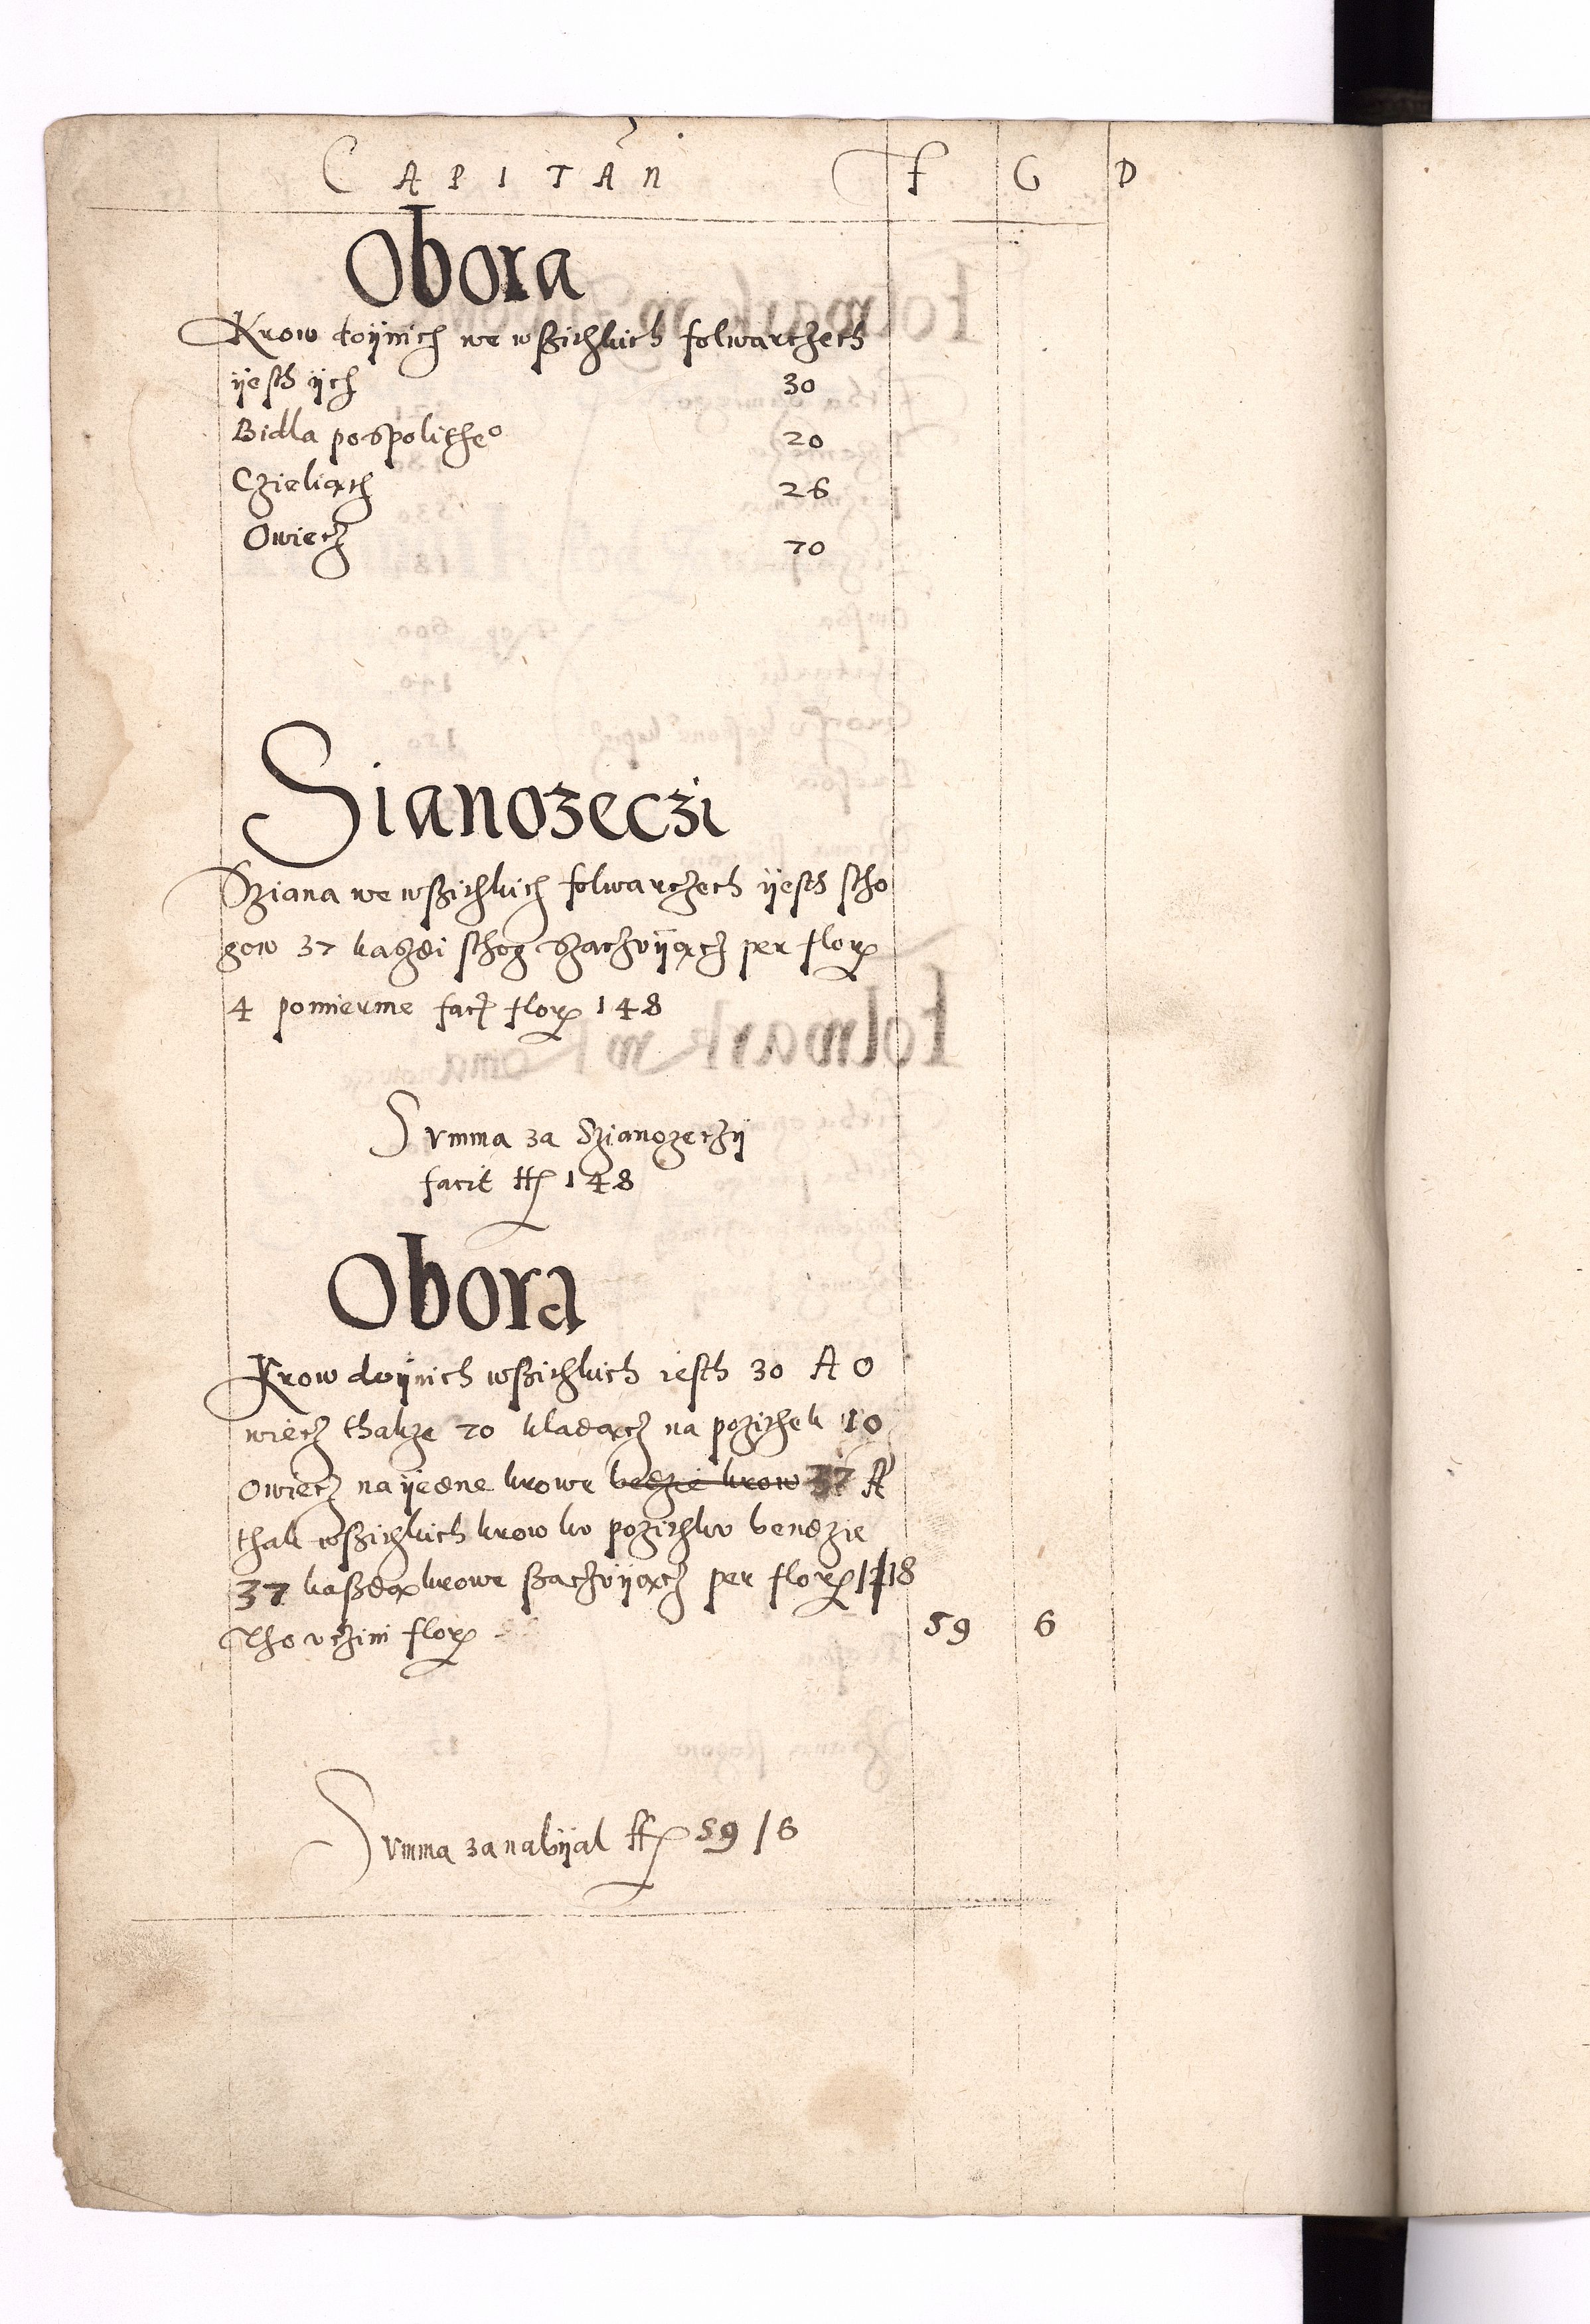 CAPITAN F G D
Obora
Krow doijnich we wßichkich folwarczech
ijesth ijch 30
Bidla pospolitheo 20
Czieliąch 26
Owiecz 70
Sianozeczi
Sziana we wßichkich folwarczech ijesth stho
gow 37 kazdi sthog szaczvijącz per flor
4 pomierme facit flor 148
Svmma za Szianozeczij
facit ff 148
Obora
Krow doijnich wßichkich iesth 30 A O
wiecz thakze 70 kladącz na pozithek 10
owiecz na ijedne krowe bedzie krow 37 A
thak wßichkich krow ku pozithku bendzie
37 kaßdą krowe szaczvijącz per flor 1/18
Tho vczini flor 59 6
Svmma za nabijal ff 59/6